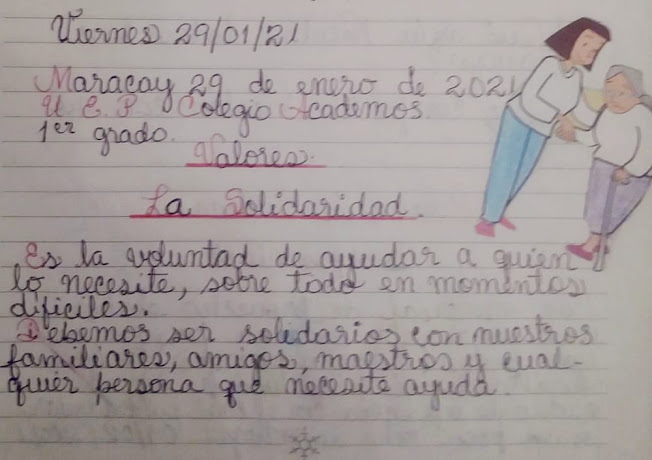 Viernes 29/01/21
Maracay 29 de enero de 2021
U. E. P Colegio Academos.
1er grado.
Valores.
La Solidaridad.
Es la voluntad de ayudar a quien
lo necesite, sobre todo en momentos
dificiles.
Debemos ser solidarios con nuestros
familiares, amigos, maestros y cual-
quier persona que necesite ayuda.